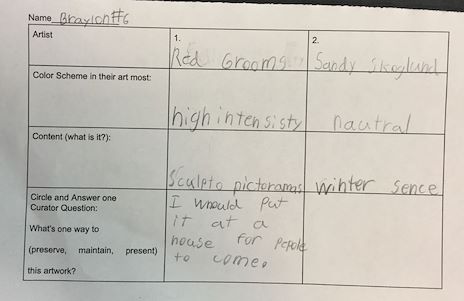 Name Braylon#6
Artist
1.
2.
Red Grooms
Sandy Skoglund
Color Scheme in their art most:
high intensisty
nautral
Content (what is it?):
Sculpto pictoramas
winter sence
Circle and Answer one
Curator Question:
What's one way to
(preserve, maintain, present)
this artwork?
I whould put
it at a
house for Pepole
to come.